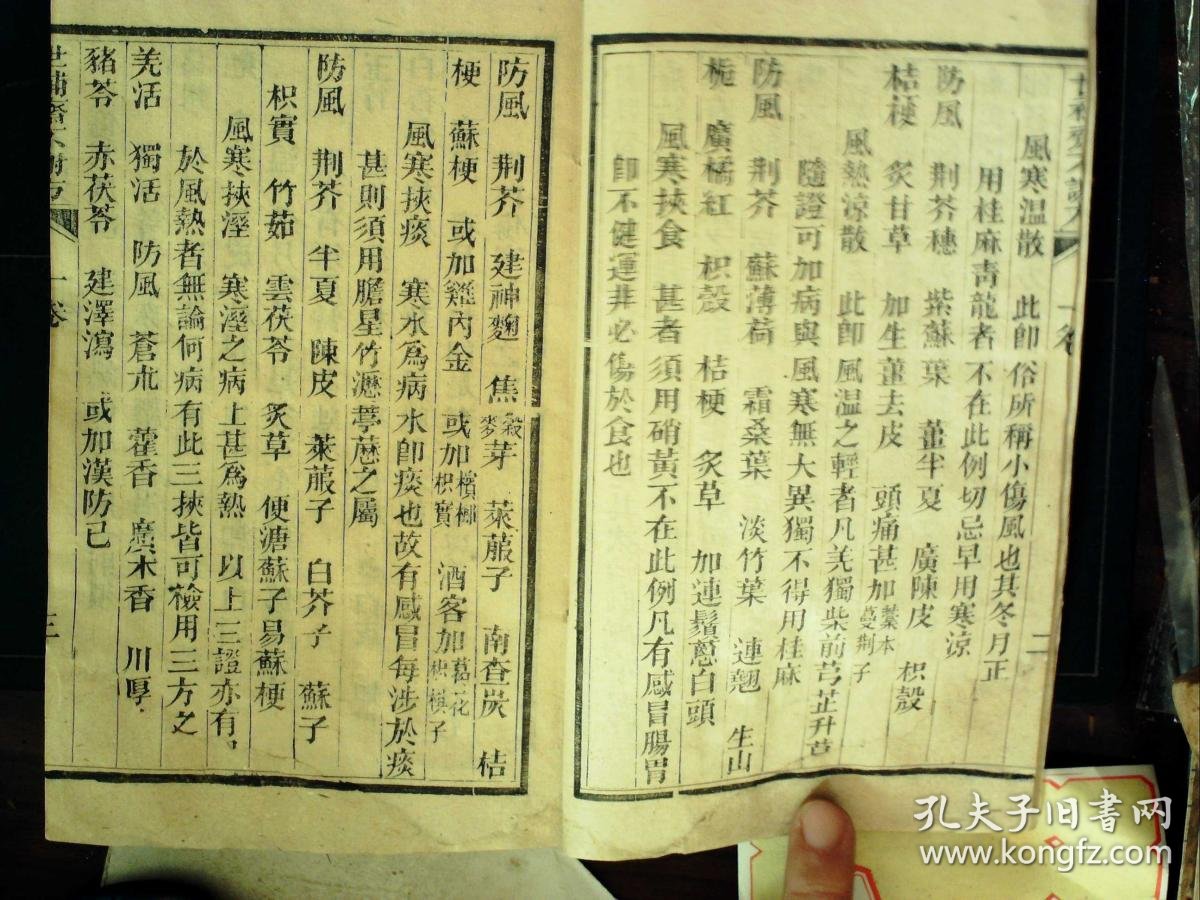 風寒温散　此卽俗所稱小傷風也其冬月正
用桂麻靑龍者不在此例切忌早用寒涼
防風　荆芥穗　紫蘇葉　薑半夏　廣陳皮　枳殼
桔梗　炙甘草　加生薑去皮　頭痛甚加藁本蔓荆子
風熱涼散　此卽風温之輕者凡羌獨柴前芎芷升葛
隨證可加病與風寒無大異獨不得用桂麻
防風　荆芥　蘇薄荷　霜桑葉　淡竹葉　連翹　生山
梔　廣橘紅　枳殼　桔梗　炙草　加連鬚蔥白頭
風寒挾食　甚者須用硝黃不在此例凡有感冒腸胃
卽不健運非必傷於食也
二
防風　荆芥　建神麯　焦穀麥芽　萊菔子　南查炭　桔
梗　蘇梗　或加雞內金　或加檳榔枳實　酒客加葛花枳椇子
風寒挾痰　寒水爲病水卽痰也故有感冒每涉於痰
甚則須用膽星竹瀝葶藶之屬
防風　荆芥　半夏　陳皮　萊菔子　白芥子　蘇子
枳實　竹茹　雲茯苓　炙草　便溏蘇子易蘇梗
風寒挾溼　寒溼之病上甚爲熱　以上三證亦有
於風熱者無論何病有此三挾皆可檢用三方之
羌活　獨活　防風　蒼朮　藿香　廣木香　川厚
豬苓　赤茯苓　建澤瀉　或加漢防已
世補齋不謝方
一卷
三
孔夫子旧书网
www.kongfz.com